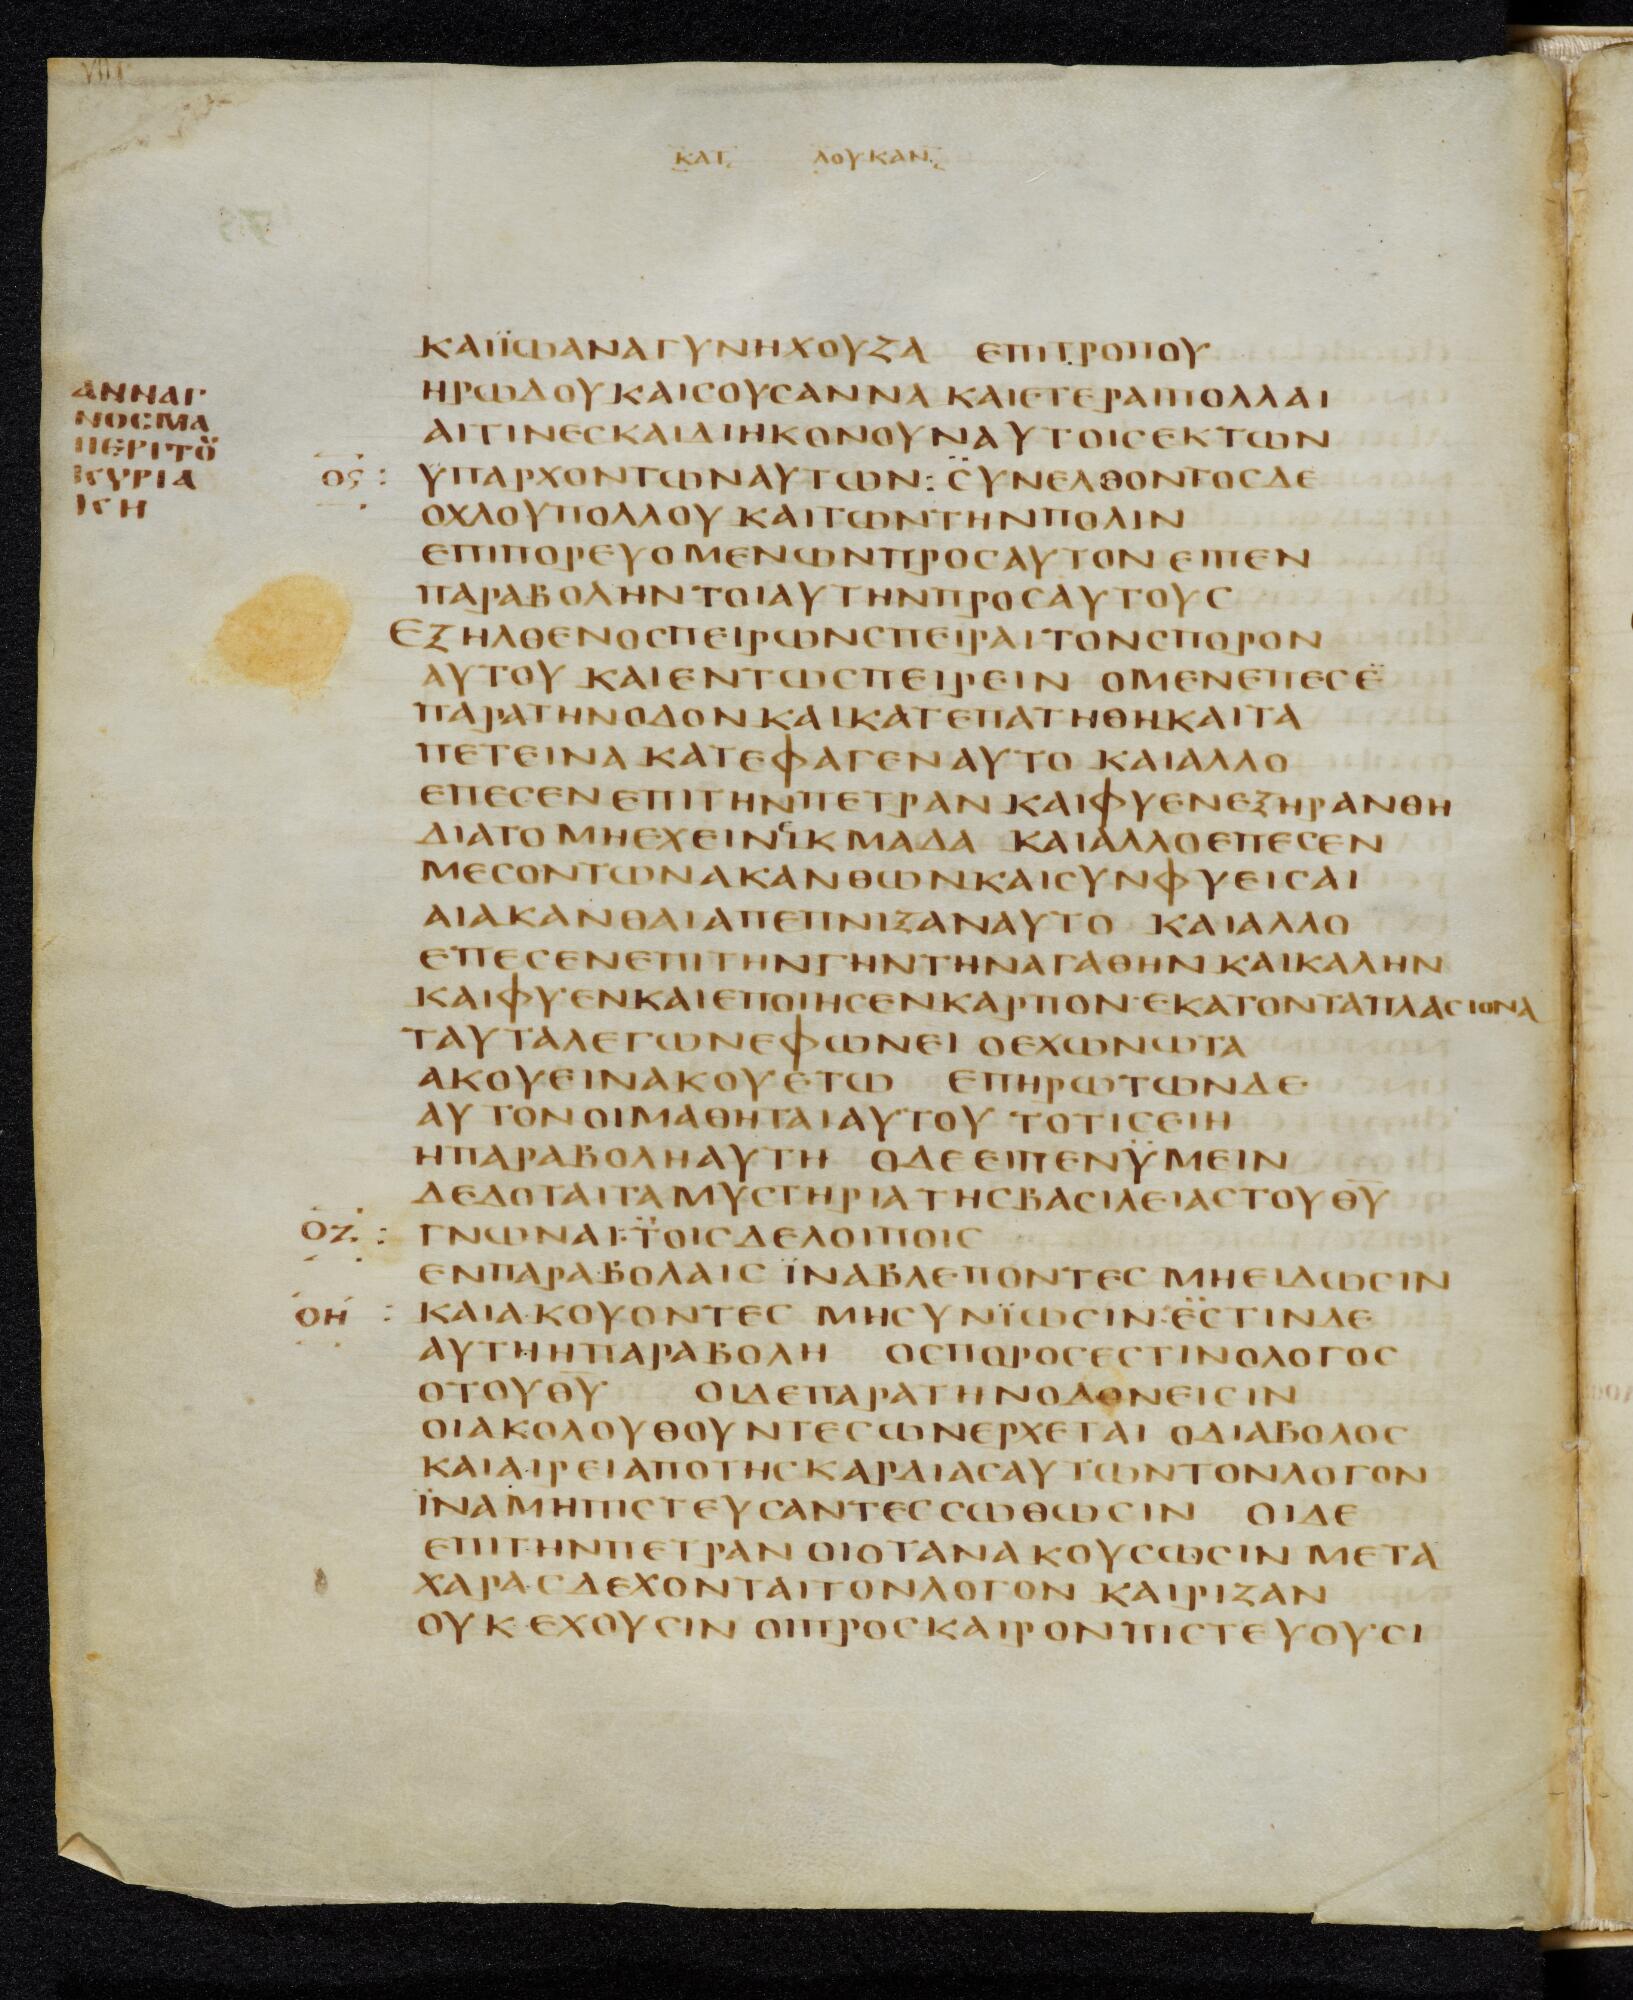 ΚΑΤ ΛΟΥΚΑΝ
ΑΝΝΑΓ
ΝΟСΜΑ
ΠΕΡΙΤΟΥ
ΚΥΡΙΑ
ΚΗ
ΚΑΙΪΩΑΝΑΓΥΝΗΧΟΥΖΑ ΕΠΙΤΡΟΠΟΥ
ΗΡΩΔΟΥΚΑΙСΟΥСΑΝΝΑ ΚΑΙΕΤΕΡΑΙΠΟΛΛΑΙ
ΑΙΤΙΝΕСΚΑΙΔΙΗΚΟΝΟΥΝΑΥΤΟΙСΕΚΤΩΝ
Οϛ : ΥΠΑΡΧΟΝΤΩΝΑΥΤΩΝ : С̈ΥΝΕΛΘΟΝΤΟСΔΕ
ΟΧΛΟΥΠΟΛΛΟΥ ΚΑΙΤΩΝΤΗΝΠΟΛΙΝ
ΕΠΙΠΟΡΕΥΟΜΕΝΩΝΠΡΟСΑΥΤΟΝΕΙΠΕΝ
ΠΑΡΑΒΟΛΗΝΤΟΙΑΥΤΗΝΠΡΟСΑΥΤΟΥС
ΕΞΗΛΘΕΝΟСΠΕΙΡΩΝСΠΕΙΡΑΙΤΟΝСΠΟΡΟΝ
ΑΥΤΟΥ ΚΑΙΕΝΤΩСΠΕΙΡΕΙΝ ΟΜΕΝΕΠΕСΕ̈
ΠΑΡΑΤΗΝΟΔΟΝΚΑΙΚΑΤΕΠΑΤΗΘΗΚΑΙΤΑ
ΠΕΤΕΙΝΑ ΚΑΤΕΦΑΓΕΝΑΥΤΟ ΚΑΙΑΛΛΟ
ΕΠΕСΕΝΕΠΙΤΗΝΠΕΤΡΑΝ ΚΑΙΦΥΕΝΕΞΗΡΑΝΘΗ
ΔΙΑΤΟΜΗΕΧΕΙΝΙΚΜΑΔΑ ΚΑΙΑΛΛΟΕΠΕСΕΝ
ΜΕСΟΝΤΩΝΑΚΑΝΘΩΝΚΑΙСΥΝΦΥΕΙСΑΙ
ΑΙΑΚΑΝΘΑΙΑΠΕΠΝΙΞΑΝΑΥΤΟ ΚΑΙΑΛΛΟ
ΕΠΕСΕΝΕΠΙΤΗΝΓΗΝΤΗΝΑΓΑΘΗΝΚΑΙΚΑΛΗΝ
ΚΑΙΦΥΕΝΚΑΙΕΠΟΙΗСΕΝΚΑΡΠΟΝ·ΕΚΑΤΟΝΤΑΠΛΑСΙΟΝΑ
ΤΑΥΤΑΛΕΓΩΝΕΦΩΝΕΙ ΟΕΧΩΝΩΤΑ
ΑΚΟΥΕΙΝΑΚΟΥΕΤΩ ΕΠΗΡΩΤΩΝΔΕ
ΑΥΤΟΝΟΙΜΑΘΗΤΑΙΑΥΤΟΥ ΤΟΤΙСΕΙΗ
ΗΠΑΡΑΒΟΛΗΑΥΤΗ ΟΔΕΕΙΠΕΝΫΜΕΙΝ
ΔΕΔΟΤΑΙΤΑΜΥСΤΗΡΙΑΤΗСΒΑСΙΛΕΙΑСΤΟΥΘ̅Υ̅
ΟΖ : ΓΝΩΝΑΙ:Τ̈ΟΙСΔΕΛΟΙΠΟΙС
ΕΝΠΑΡΑΒΟΛΑΙС ΪΝΑΒΛΕΠΟΝΤΕС ΜΗΕΙΔΩСΙΝ
ΟΗ : ΚΑΙΑΚΟΥΟΝΤΕС ΜΗСΥΝΪΩСΙΝ:Ε̈СΤΙΝΔΕ
ΑΥΤΗΗΠΑΡΑΒΟΛΗ ΟСΠΟΡΟСΕСΤΙΝΟΛΟΓΟС
ΟΤΟΥΘ̅Υ̅ ΟΙΔΕΠΑΡΑΤΗΝΟΔΟΝΕΙСΙΝ
ΟΙΑΚΟΛΟΥΘΟΥΝΤΕСΩΝΕΡΧΕΤΑΙ ΟΔΙΑΒΟΛΟС
ΚΑΙΑΙΡΕΙΑΠΟΤΗСΚΑΡΔΙΑСΑΥΤΩΝΤΟΝΛΟΓΟΝ
ΪΝΑΜΗΠΙСΤΕΥСΑΝΤΕССΩΘΩСΙΝ ΟΙΔΕ
ΕΠΙΤΗΝΠΕΤΡΑΝ ΟΙΟΤΑΝΑΚΟΥСΩСΙΝ ΜΕΤΑ
ΧΑΡΑСΔΕΧΟΝΤΑΙΤΟΝΛΟΓΟΝ ΚΑΙΡΙΖΑΝ
ΟΥΚΕΧΟΥСΙΝ ΟΙΠΡΟСΚΑΙΡΟΝΠΙСΤΕΥΟΥСΙ